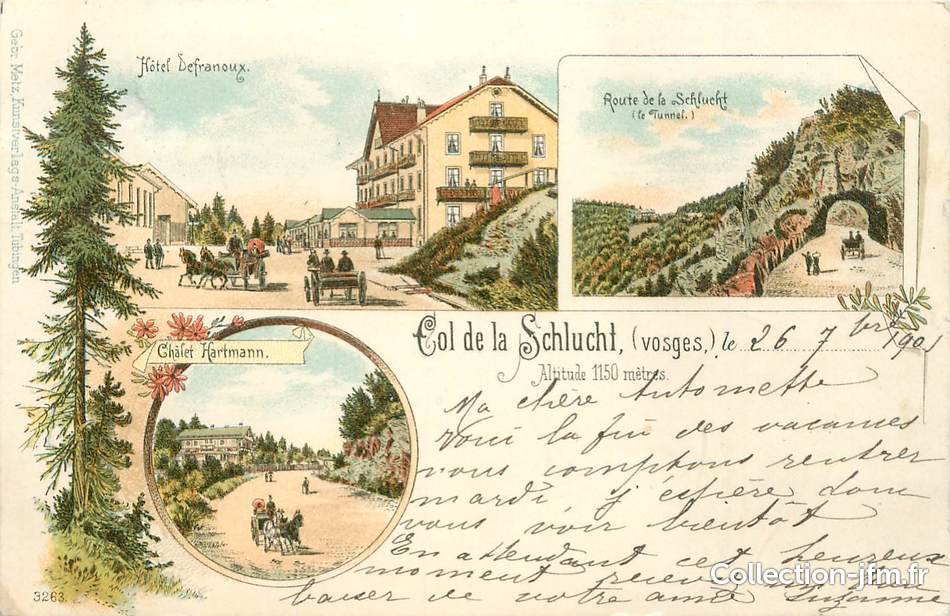 Gebr. Metz, Kunstverlags-Anstalt, Tübingen
Hôtel Defranoux.
Route de la Schlucht
(le Tunnel.)
Châlet Hartmann.
Col de la Schlucht, (vosges,) le 26 7bre 1901
Altitude 1150 mètres.
Ma chère Antoinette
Voici la fin des vacances
nous comptons rentrer
mardi j'espère donc
vous voir bientôt
En attendant cet heureux
moment recevez
baiser de votre amie Suzanne
3263.
Collection-jfm.fr